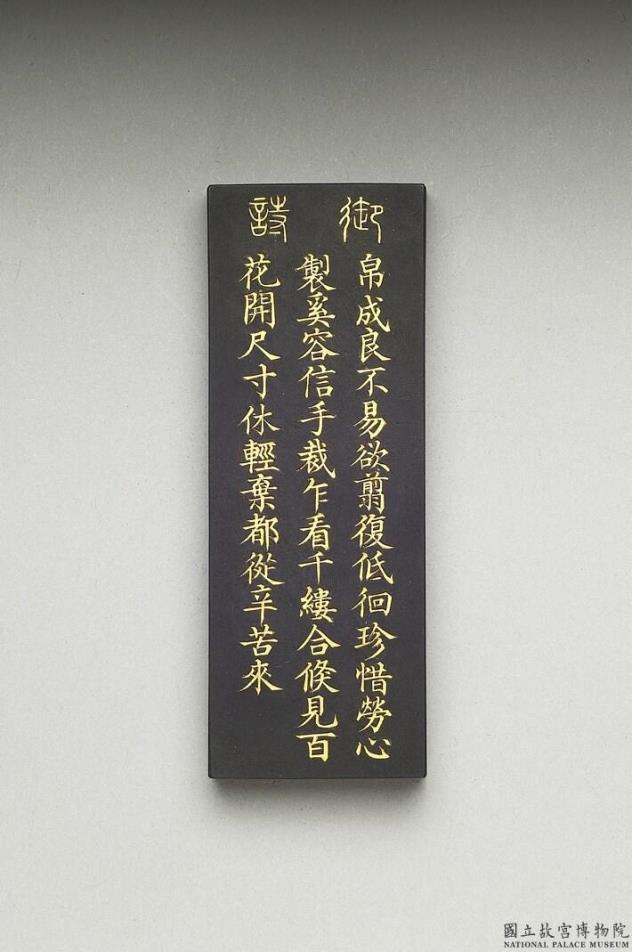 御詩
帛成良不易欲翦復低徊珍惜勞心
製奚容信手裁乍看千縷合倐見百
花開尺寸休輕棄都從辛苦來
國立故宮博物院
NATIONAL PALACE MUSEUM